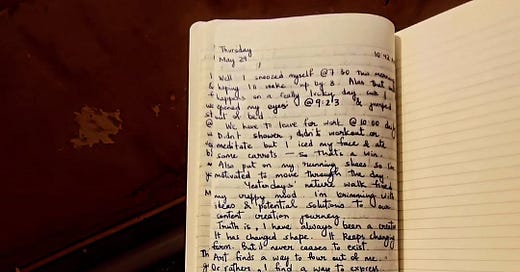 Thursday
May 29, 10:42
Well I snoozed myself @ 7:30 this
hoping to wake up by 8. Alas that
happens on a really lucky day and I
opened my eyes @ 9:23 & jumped
out of bed.
We have to leave for work @ 10:00
Didn't shower, didn't workout or
meditate but I iced my face & ate
some carrots — so that's a win.
Also put on my running shoes so I'm
motivated to move through the day.
Yesterday's nature walk fixed
my crappy mood. I'm brimming with
ideas & potential solutions to our
content creation journey.
Truth is, I have always been a creator
It has changed shape. It keeps changing
form. But I never ceases to exist.
Art finds a way to flow out of me.
Or rather, I find a way to express